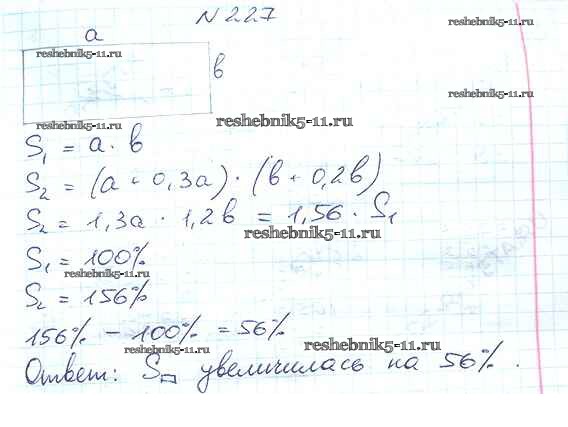 N 227
a
reshebnik5-11.ru
reshebnik5-11.ru
reshebnik5-11.ru
b
reshebnik5-11.ru
reshebnik5-11.ru
reshebnik5-11.ru
S₁ = a · b
S₂ = (a + 0,3a) · (b + 0,2b)
S₂ = 1,3a · 1,2b = 1,56 · S₁
reshebnik5-11.ru
S₁ = 100%
reshebnik5-11.ru
S₂ = 156%
156% - 100% = 56%
reshebnik5-11.ru
reshebnik5-11.ru
Ответ: S▭ увеличилась на 56%.